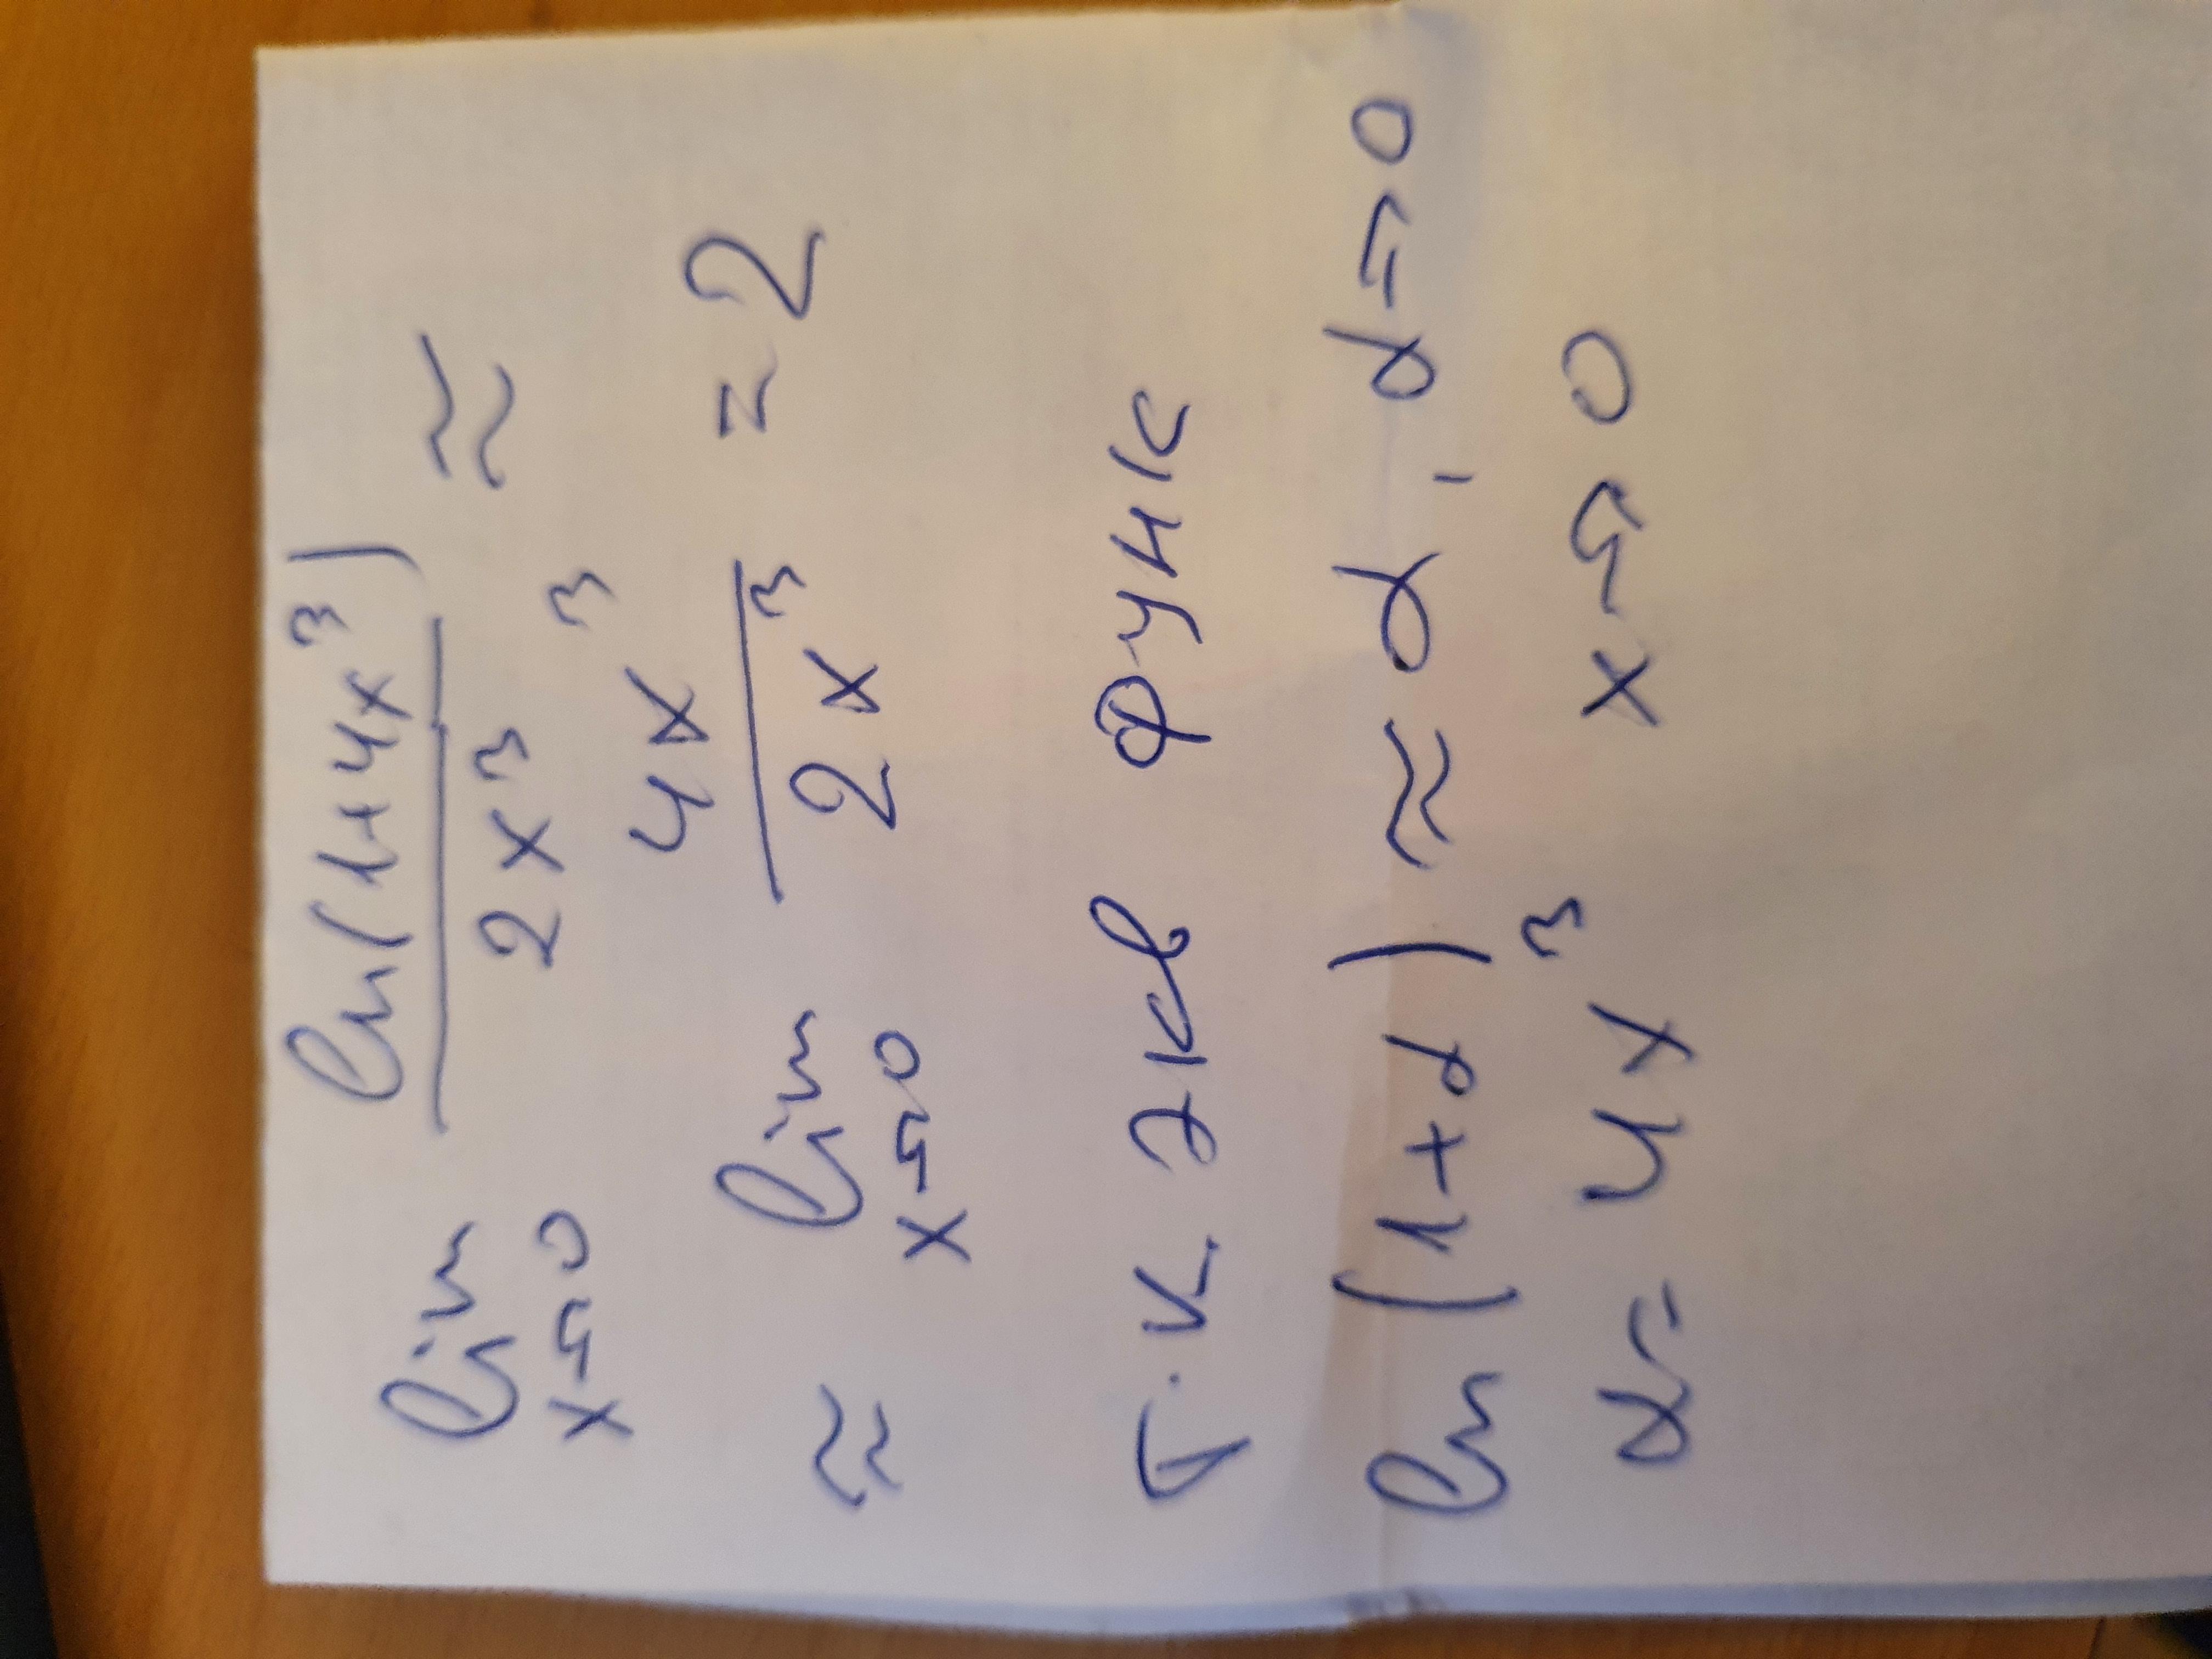 lim ln(1+4x³) ≈
x→0 2x³
≈ lim 4x³ = 2
x→0 2x³
Т.к. экв функ
ln(1+α) ≈ α, α→0
α = 4x³ x→0